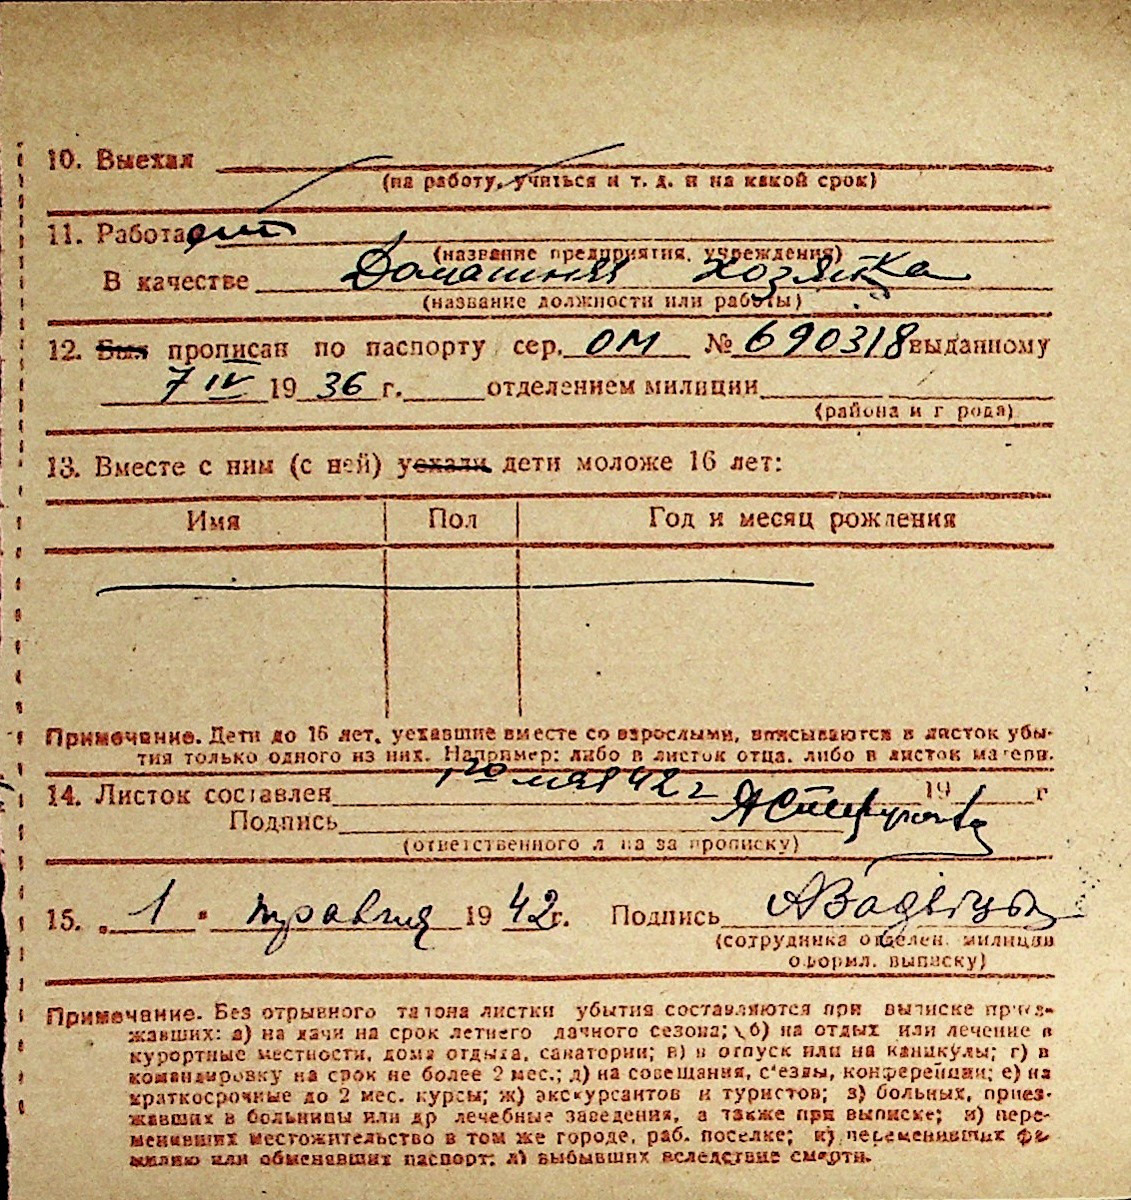 10. Выехал
(на работу, учиться и т. д. и на какой срок)
11. Работает
(название предприятия, учреждения)
В качестве Домашняя хозяйка
(название должности или работы)
12. Был прописан по паспорту сер. ОМ № 690318 выданному
7 IV 19 36 г. отделением милиции
(района и города)
13. Вместе с ним (с ней) уехали дети моложе 16 лет:
Имя Пол Год и месяц рождения
Примечание. Дети до 16 лет, уехавшие вместе со взрослыми, вписываются в листок убы-
тия только одного из них. Например: либо в листок отца, либо в листок матери.
14. Листок составлен 1го мая 42 г 19 г
Подпись
(ответственного лица за прописку)
15. 1 " травня 19 42 г. Подпись
(сотрудника отделен. милиции
оформл. выписку)
Примечание. Без отрывного талона листки убытия составляются при выписке приез-
жавших: а) на дачи на срок летнего дачного сезона; б) на отдых или лечение в
курортные местности, дома отдыха, санатории; в) в отпуск или на каникулы; г) в
командировку на срок не более 2 мес.; д) на совещания, с'езды, конференции; е) на
краткосрочные до 2 мес. курсы; ж) экскурсантов и туристов; з) больных, приез-
жавших в больницы или др лечебные заведения, а также при выписке; и) пере-
менивших местожительство в том же городе, раб. поселке; к) переменивших фа-
милию или обменявших паспорт; л) выбывших вследствие смерти.